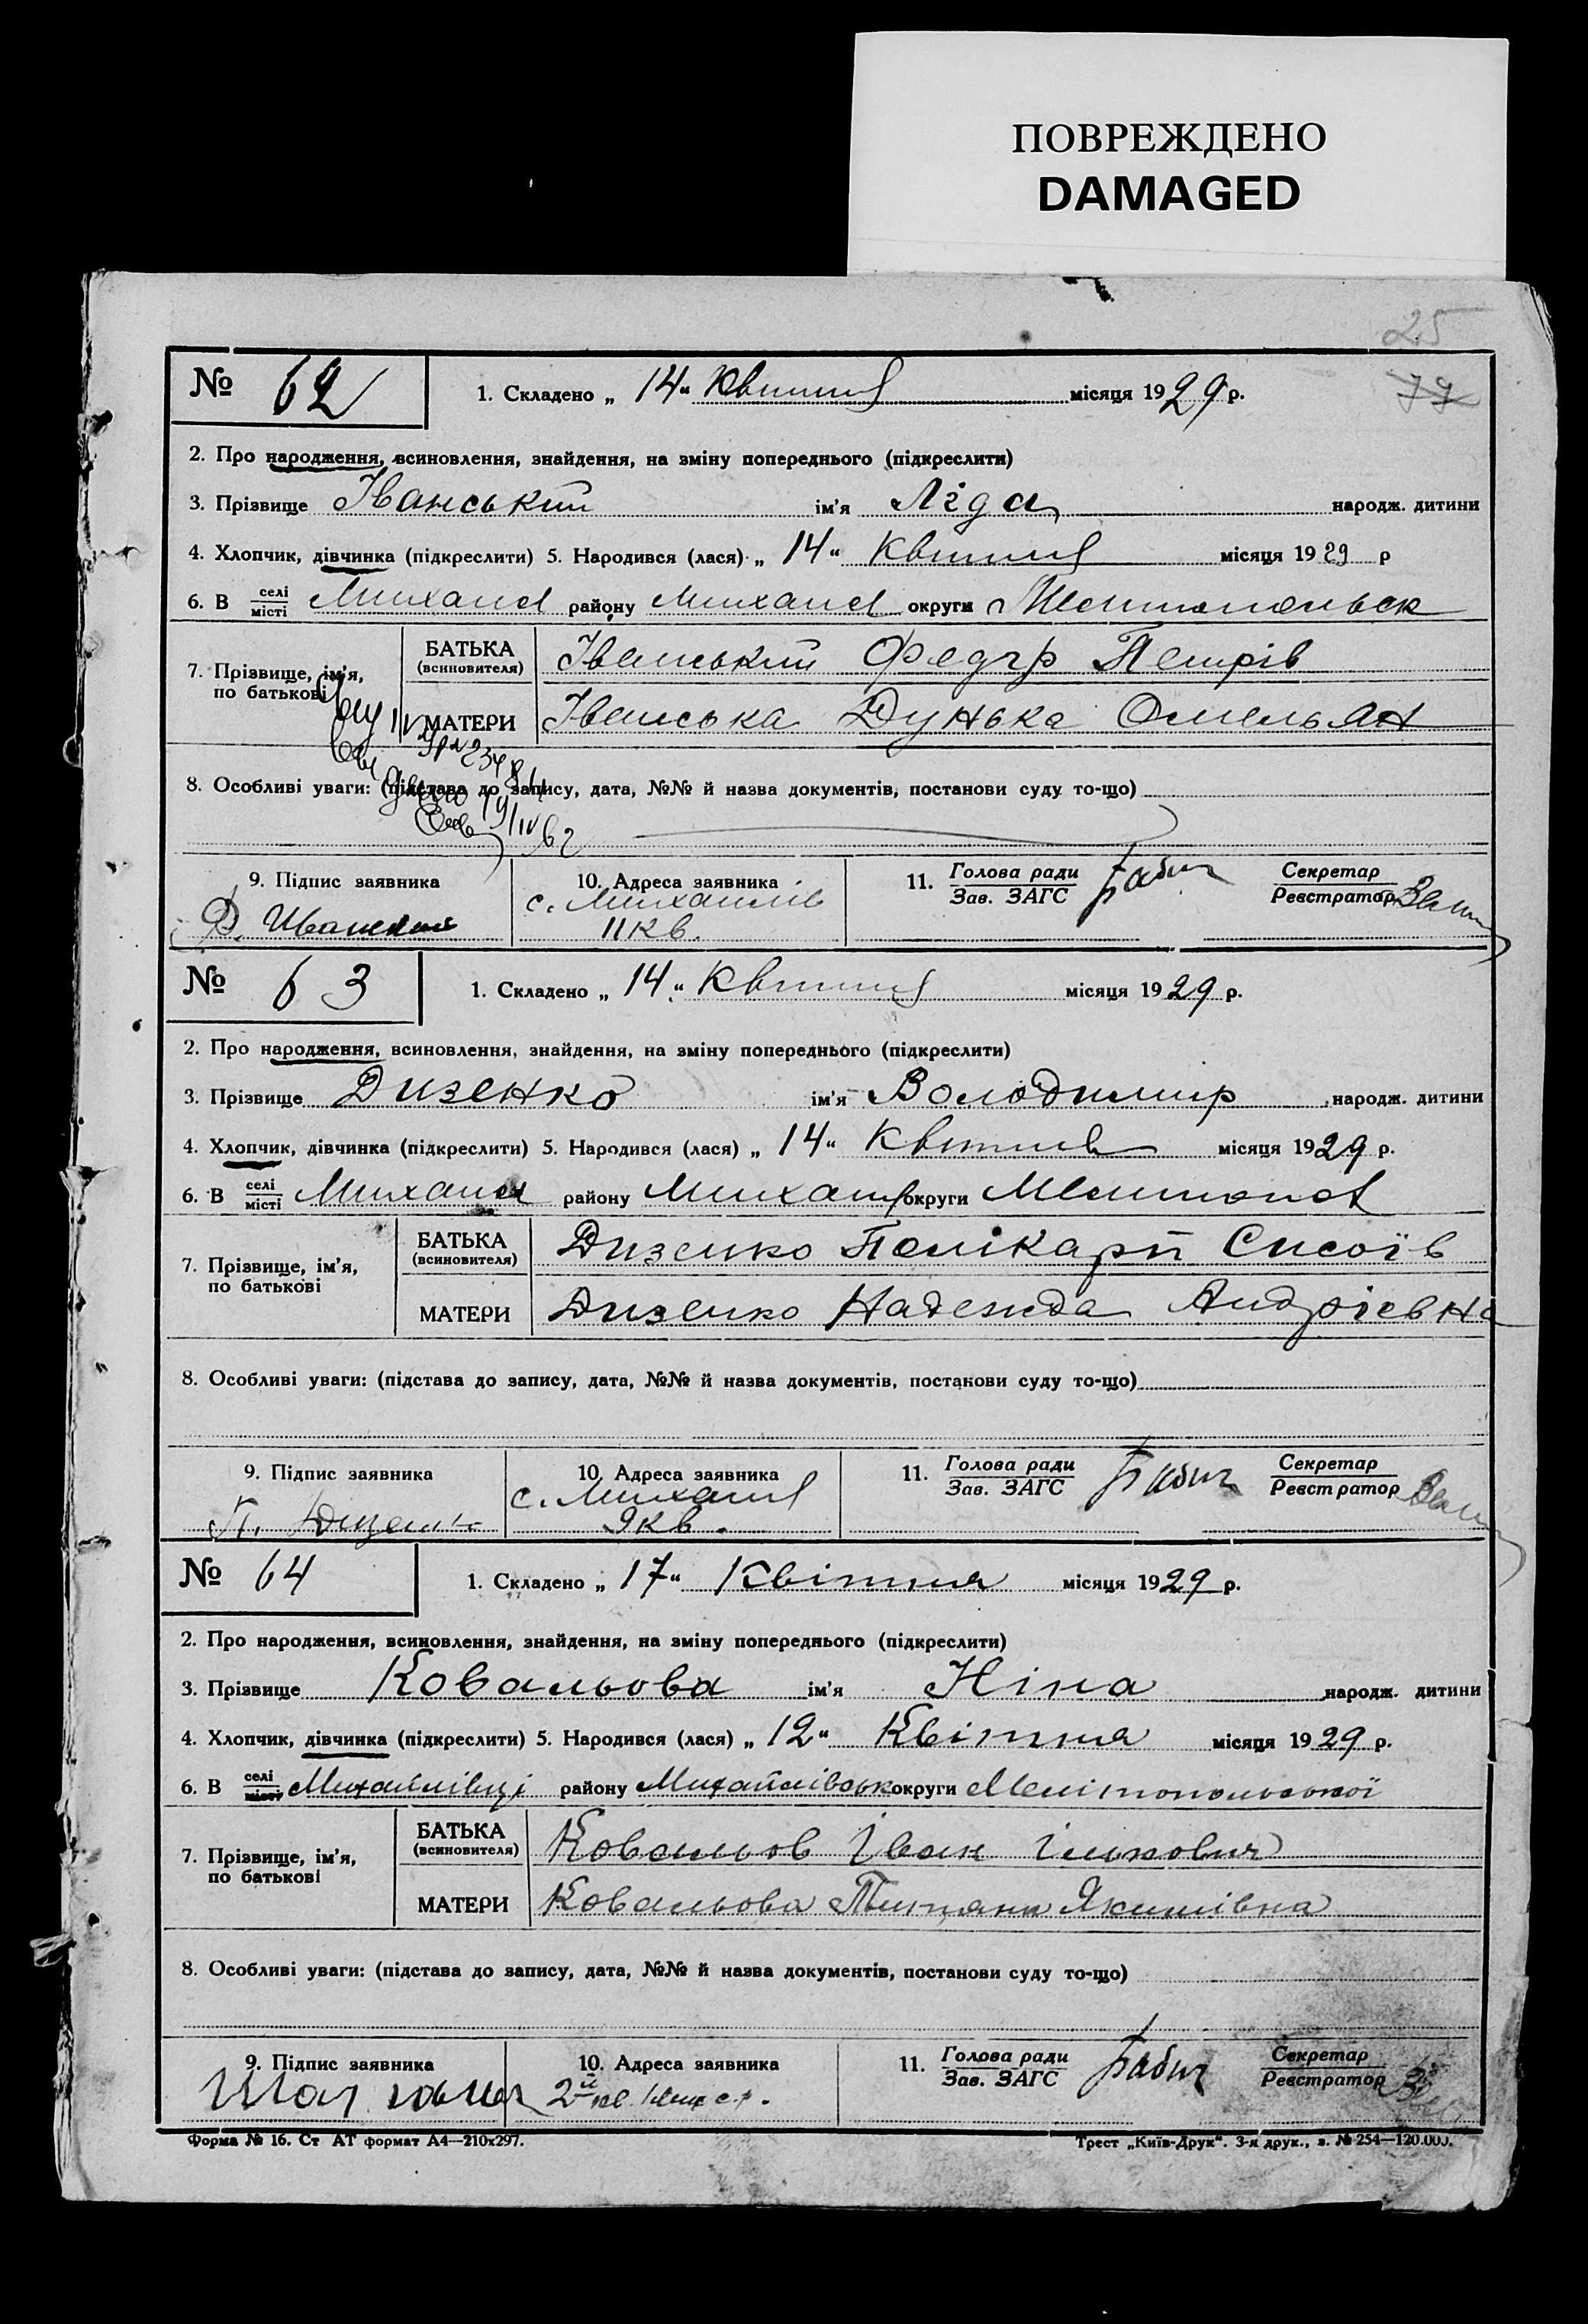 ПОВРЕЖДЕНО
DAMAGED
25
77
№ 62 1. Складено „ 14 “ Квітня місяця 1929 р.
2. Про народження, всиновлення, знайдення, на зміну попереднього (підкреслити)
3. Прізвище Іванський ім'я Ліда народж. дитини
4. Хлопчик, дівчинка (підкреслити) 5. Народився (лася) „ 14 “ Квітня місяця 1929 р
6. В селі місті Михайл району Михайл округи
7. Прізвище, ім'я, по батькові БАТЬКА (всиновителя) Іванський Федір Петрів
МАТЕРИ Іванська Дунька Омельян
8. Особливі уваги: (підстава до запису, дата, №№ й назва документів, постанови суду то-що)
9. Підпис заявника 10. Адреса заявника 11. Голова ради Зав. ЗАГС Бабич Секретар Реєстратор
с. Михайлів
Ф. Иванский 11 кв.
№ 63 1. Складено „ 14 “ Квітня місяця 1929 р.
2. Про народження, всиновлення, знайдення, на зміну попереднього (підкреслити)
3. Прізвище Дизенко ім'я Володимир народж. дитини
4. Хлопчик, дівчинка (підкреслити) 5. Народився (лася) „ 14 “ Квітня місяця 1929 р.
6. В селі місті Михайл району Михайл округи Мелитопол
7. Прізвище, ім'я, по батькові БАТЬКА (всиновителя) Дизенко Полікарп Сисоїв
МАТЕРИ Дизенко Надежда Андрієвна
8. Особливі уваги: (підстава до запису, дата, №№ й назва документів, постанови суду то-що)
9. Підпис заявника 10. Адреса заявника 11. Голова ради Зав. ЗАГС Бабич Секретар Реєстратор
с. Михайл
П. 9 кв.
№ 64 1. Складено „ 17 “ Квітня місяця 1929 р.
2. Про народження, всиновлення, знайдення, на зміну попереднього (підкреслити)
3. Прізвище Ковальова ім'я Ніна народж. дитини
4. Хлопчик, дівчинка (підкреслити) 5. Народився (лася) „ 12 “ Квітня місяця 1929 р.
6. В селі місті Михайлівці району Михайлівськ округи Мелітопольської
7. Прізвище, ім'я, по батькові БАТЬКА (всиновителя) Ковальов Іван Ількович
МАТЕРИ Ковальова Титяни Якимівна
8. Особливі уваги: (підстава до запису, дата, №№ й назва документів, постанови суду то-що)
9. Підпис заявника 10. Адреса заявника 11. Голова ради Зав. ЗАГС Бабич Секретар Реєстратор
Форма № 16. Ст АТ формат А4—210х297. Трест „Київ-Друк“. 3-я друк., з. № 254—120.000.